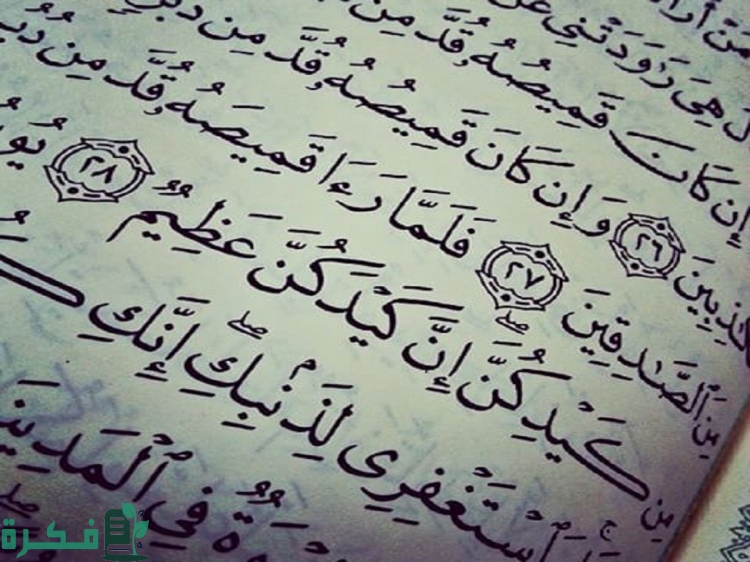 مَنْ
هِيَ رَٰوَدَتْنِى عَن
إِن كَانَ قَمِيصُهُۥ قُدَّ مِن
ٱلْكَٰذِبِينَ ٢٦ وَإِن كَانَ قَمِيصُهُۥ قُدَّ مِن دُبُرٍ
مِنَ ٱلصَّٰدِقِينَ ٢٧ فَلَمَّا رَءَا قَمِيصَهُۥ قُدَّ مِن دُبُ
مِن كَيْدِكُنَّ ۖ إِنَّ كَيْدَكُنَّ عَظِيمٌ ٢٨ يُو
وَٱسْتَغْفِرِى لِذَنۢبِكِ ۖ إِنَّكِ
فِى ٱلْمَدِينَ
فكرة